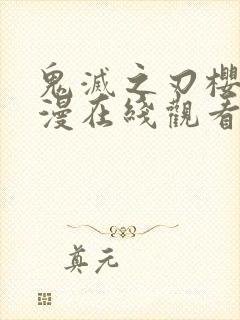 鬼滅之刃櫻
漫在綫觀看
真元